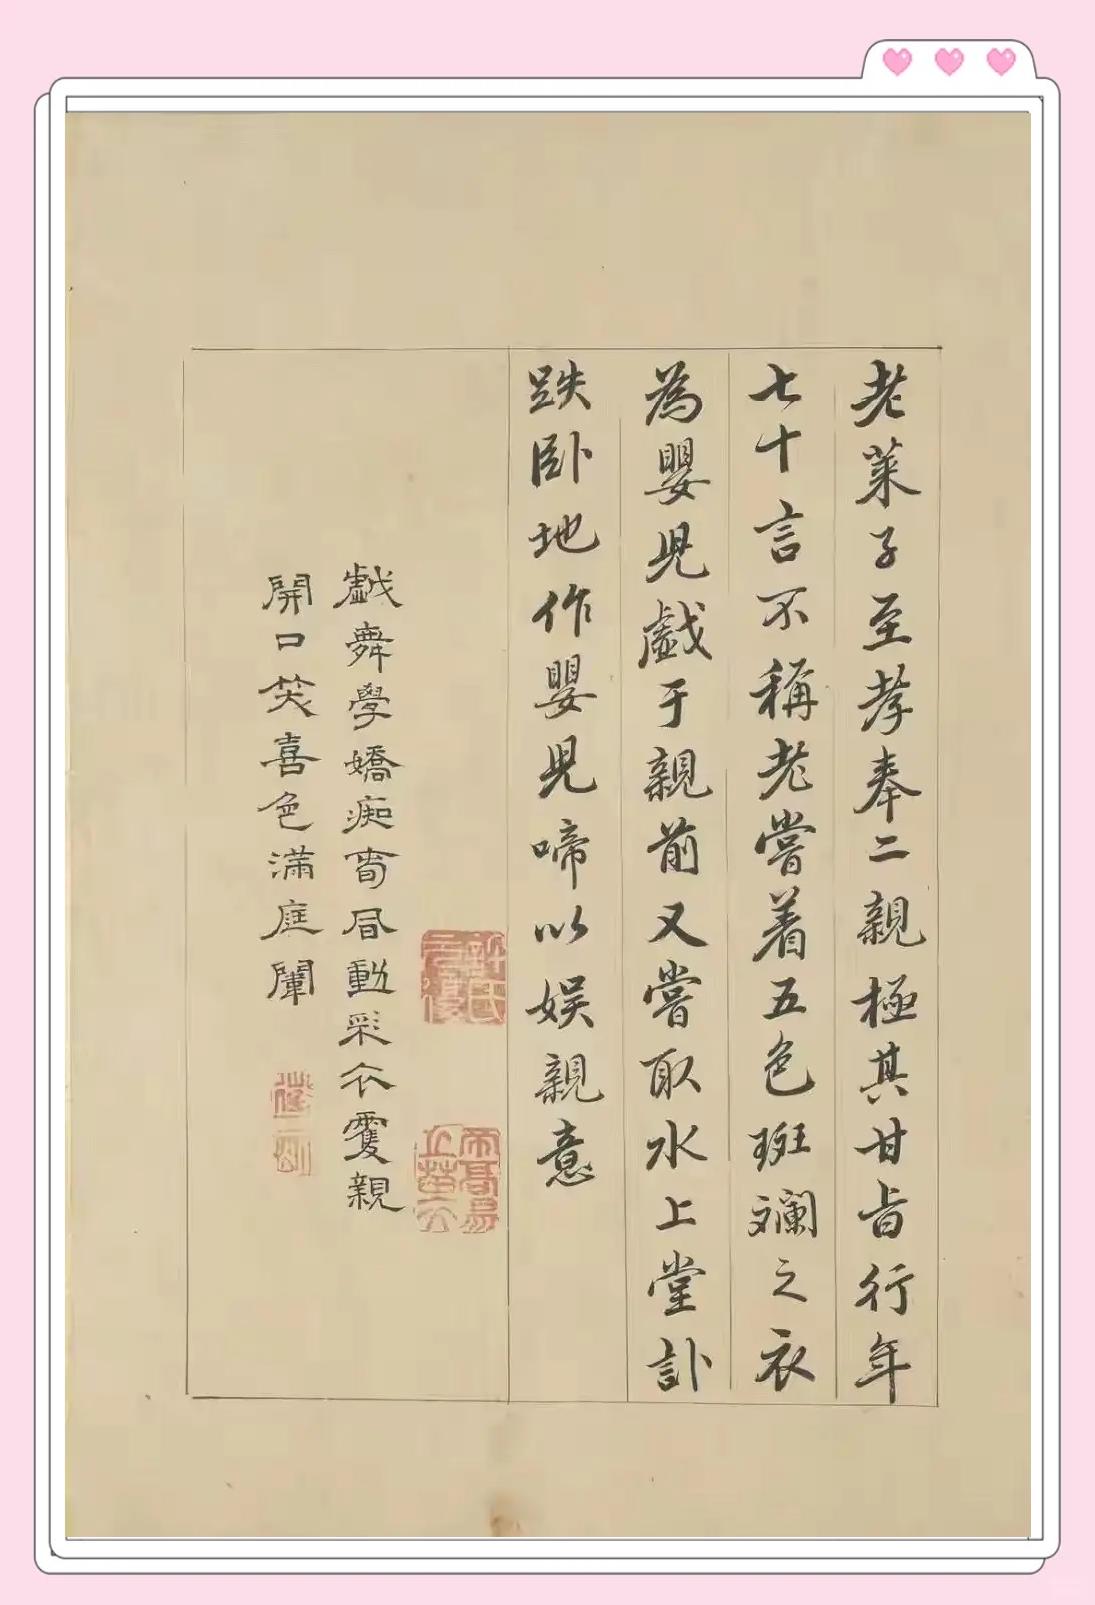 老莱子至孝奉二親極其甘旨行年
七十言不稱老嘗着五色斑斕之衣
為嬰児戯于親前又嘗取水上堂訃
跌卧地作嬰児啼以娱親意
戯舞學嬌痴春風動彩衣雙親
開口笑喜色滿庭闈